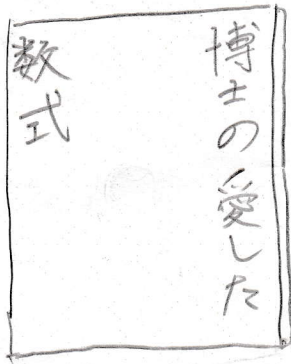 博士の愛した
数式